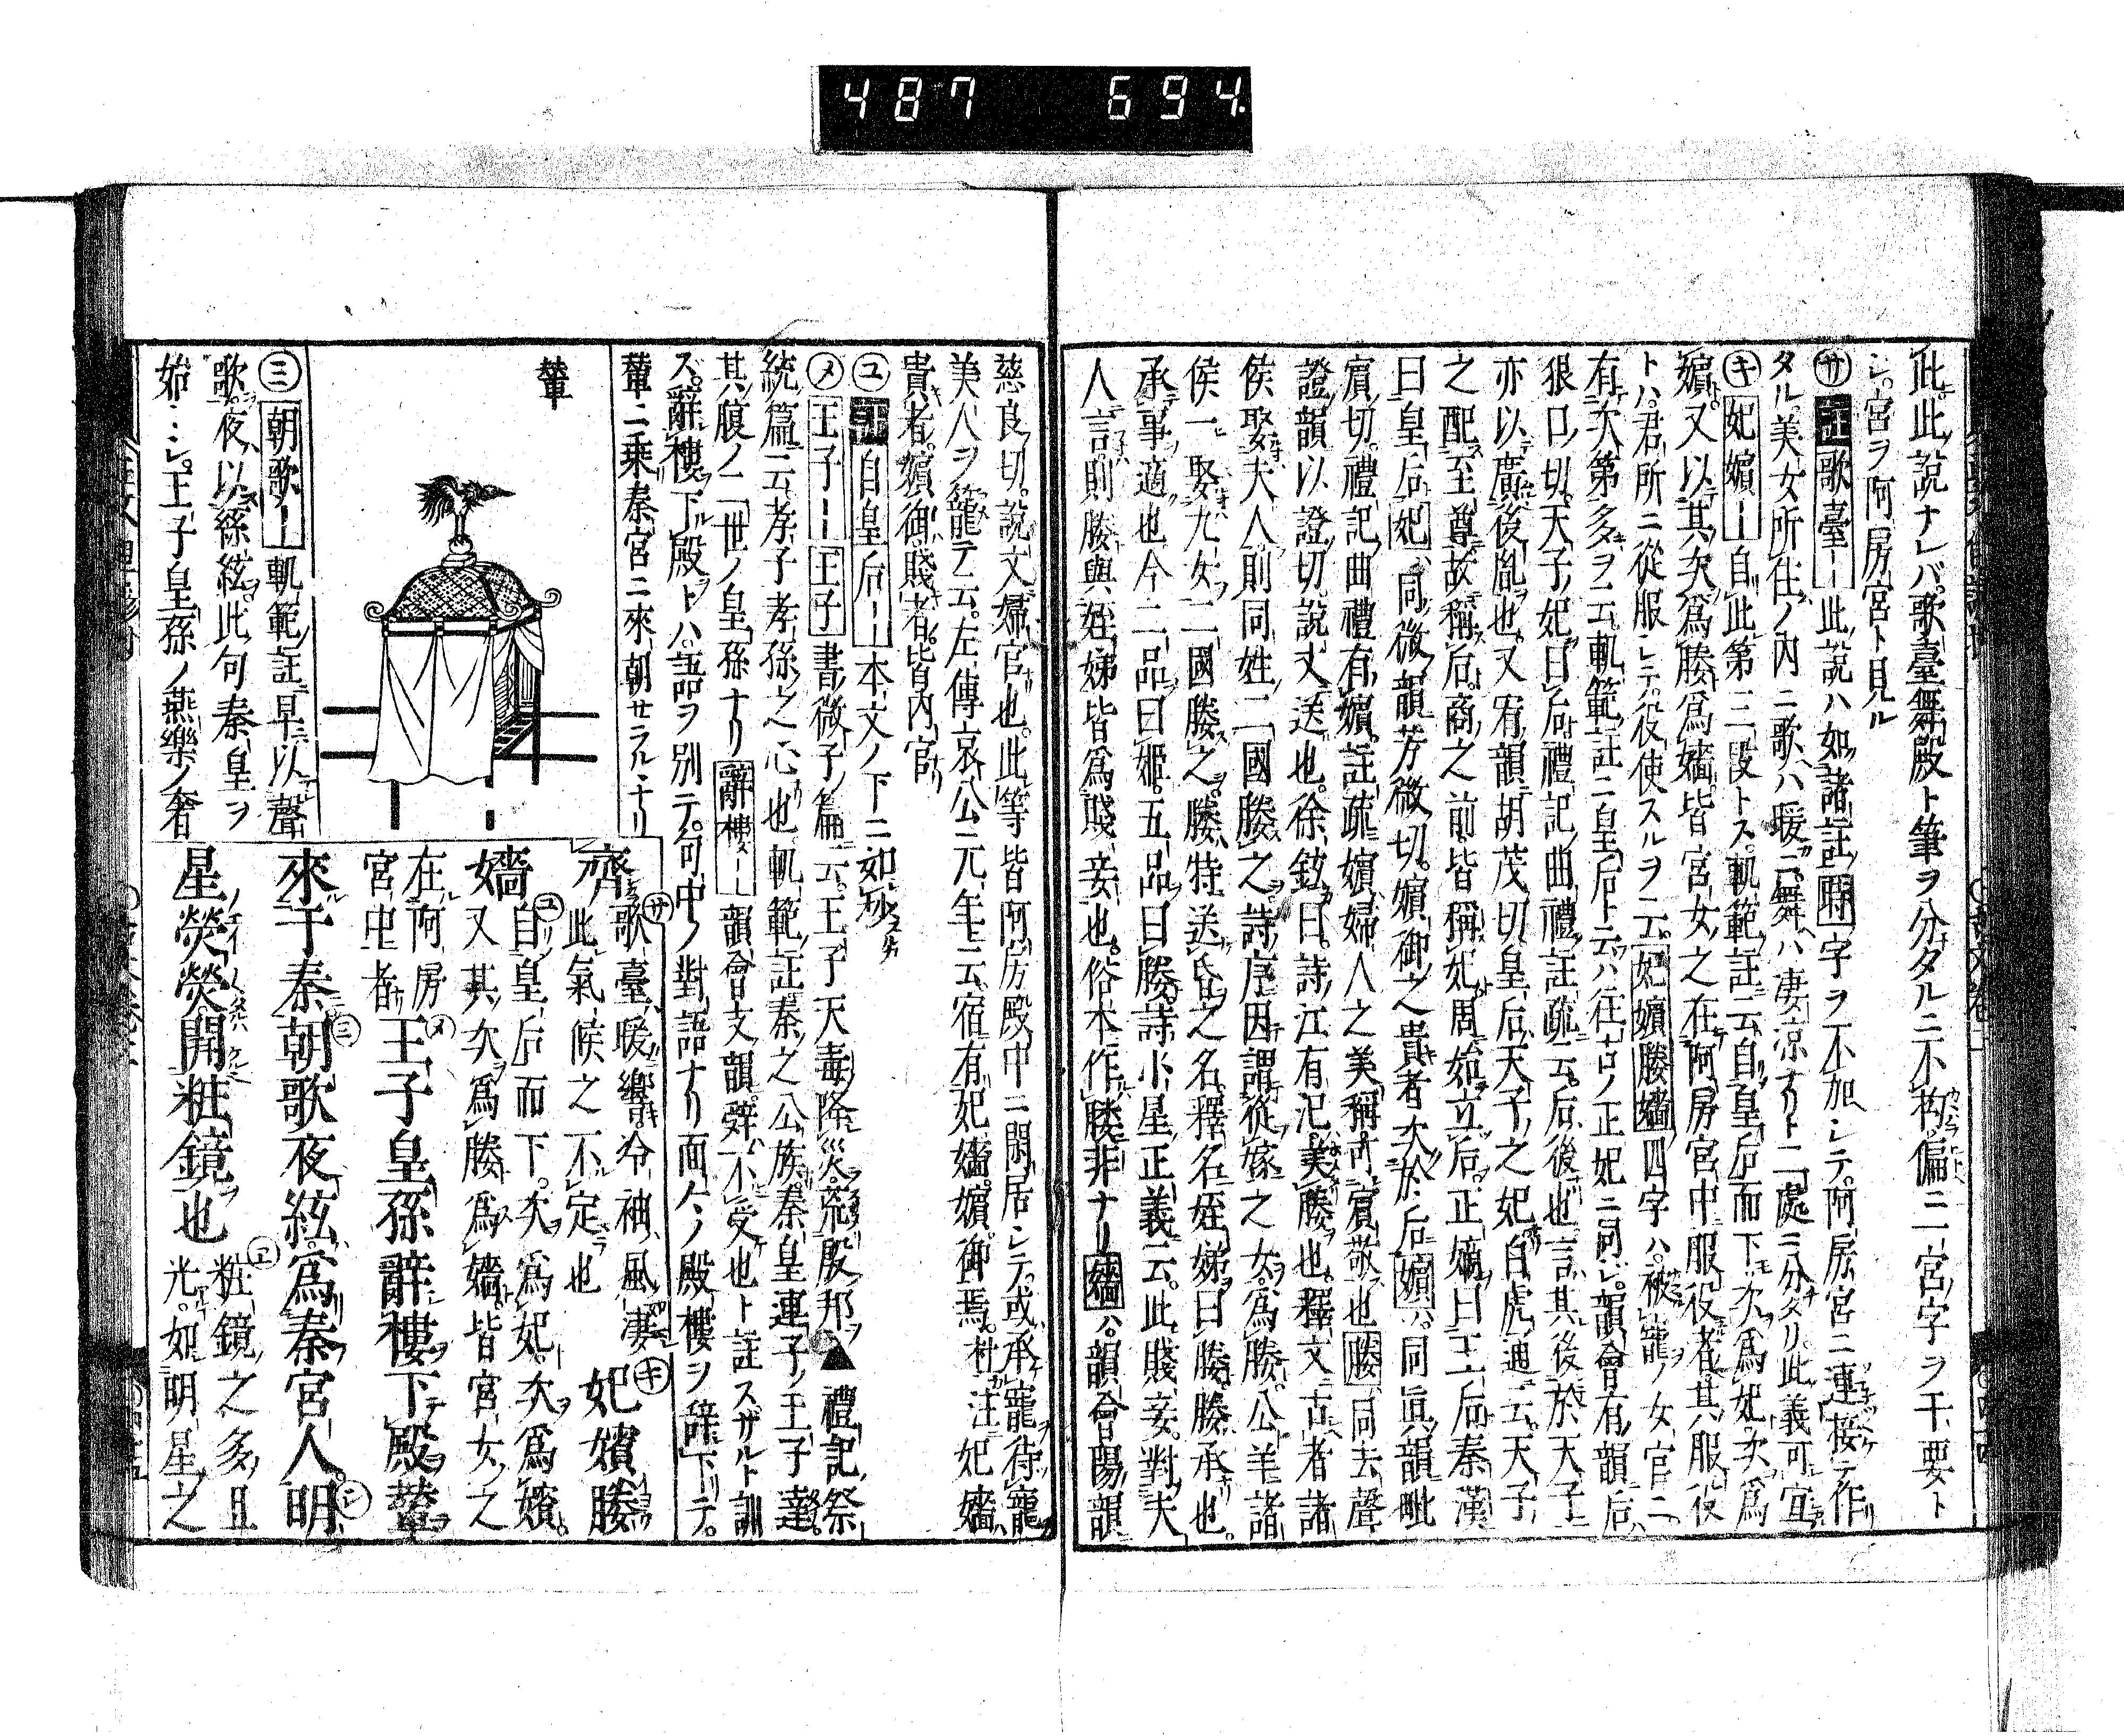 487 694
此此說ナレバ歌臺舞殿ト筆ヲ分タルニ不拘偏ニ一宮字ヲ干要ト
シ宮ヲ阿房宮ト見ル
㋚註歌臺――此說ハ如諸註時字ヲ不加シテ阿房宮ニ連接テ作
タル美女所住ノ內ニ歌ハ暖ニ舞ハ凄凉ナリト二處ニ分タリ此義可宜
㋖妃嬪――自此第三段トス軌範註云自皇后而下次爲妃次爲
嬪又以其次爲媵爲嬙皆宮女之在阿房宮中服役者其服役
トハ君所ニ從服シテ役使スルヲ云妃嬪媵嬙四字ハ被寵ノ女官ニ
有次第多ヲ云軌範註ニ皇后ト云ハ往古ノ正妃ニ同シ韻會有韻后
狠口切天子妃曰后禮記曲禮註疏云后後也言其後於天子
亦以廣後胤也又宥韻胡茂切皇后天子之妃白虎通云天子
之配至尊故稱后商之前皆稱妃周始立后正嫡曰王后秦漢
曰皇后妃同微韻芳微切嬪御之貴者次於后嬪ハ同眞韻毗
賓切禮記曲禮有嬪註疏嬪婦人之美稱可賓敬也媵同去聲
證韻以證切說文送也徐鉉曰詩江有汜美媵也釋文古者諸
侯娶夫人則同姓二國媵之詩序因謂從嫁之女爲媵公羊諸
侯一娶九女二國媵之媵特送昏之名釋名姪娣曰媵媵承也
承事適也今二品曰姬五品曰媵詩小星正義云此賤妾對夫
人言則媵與姪娣皆爲賤妾也俗本作媵非ナリ嬙ハ韻會陽韻
慈良切說文婦官也此等皆阿房殿中ニ閑居シテ或承寵待寵
美人ヲ籠テ云左傳哀公元年云宿有妃嬙嬪御焉杜注妃嬙
貴者嬪御賤者皆內官
㋴註自皇后――本文ノ下ニ如抄
㋱王子――王子書微子篇云王子天毒降災荒殷邦▲禮記祭
統篇云孝子孝孫之心也軌範註秦之公族秦皇連子ノ王子達
其腹ノ二世ノ皇孫ナリ辭樓――韻會支韻辭不受也ト註スザルト訓
ズ辭樓下殿トハ語ヲ別テ句中ノ對語ナリ面々ノ殿樓ヲ辭下リテ
輦ニ乘秦宮ニ來朝セラルヽナリ
輦
㋯朝歌――軌範註早以聲
歌夜以絲絃此句秦皇ヲ
始トシ王子皇孫ノ燕樂ノ奢
齊㋚歌臺暖響冷袖風凄
此氣候之不定也㋖妃嬪媵
嬙㋴自皇后而下次爲妃次爲嬪
又其次爲媵爲嬙皆宮女之
在阿房
宮中者㋱王子皇孫辭樓下殿輦
來于秦㋯朝歌夜絃爲秦宮人㋛明
星熒熒開粧鏡也㋓粧鏡之多且
光如明星之